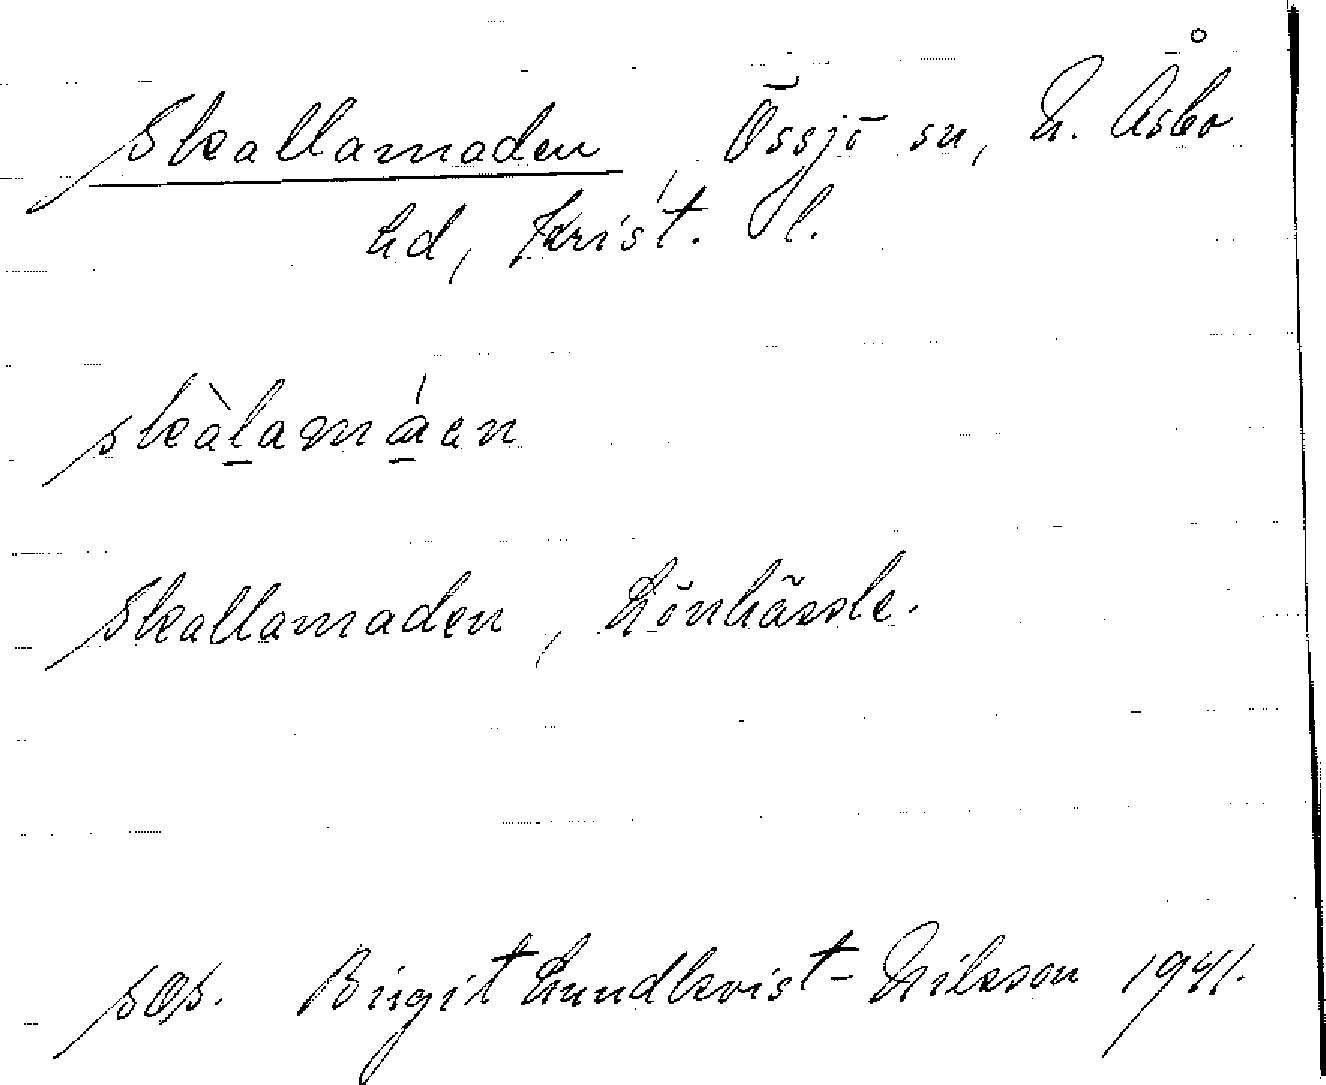 Skallamaden, Össjö sn, N. Åsbo
hd, Krist. l.
skàlamáen
Skallamaden, Lönhässle.
Birgit Lundkvist-Nilsson 1941.